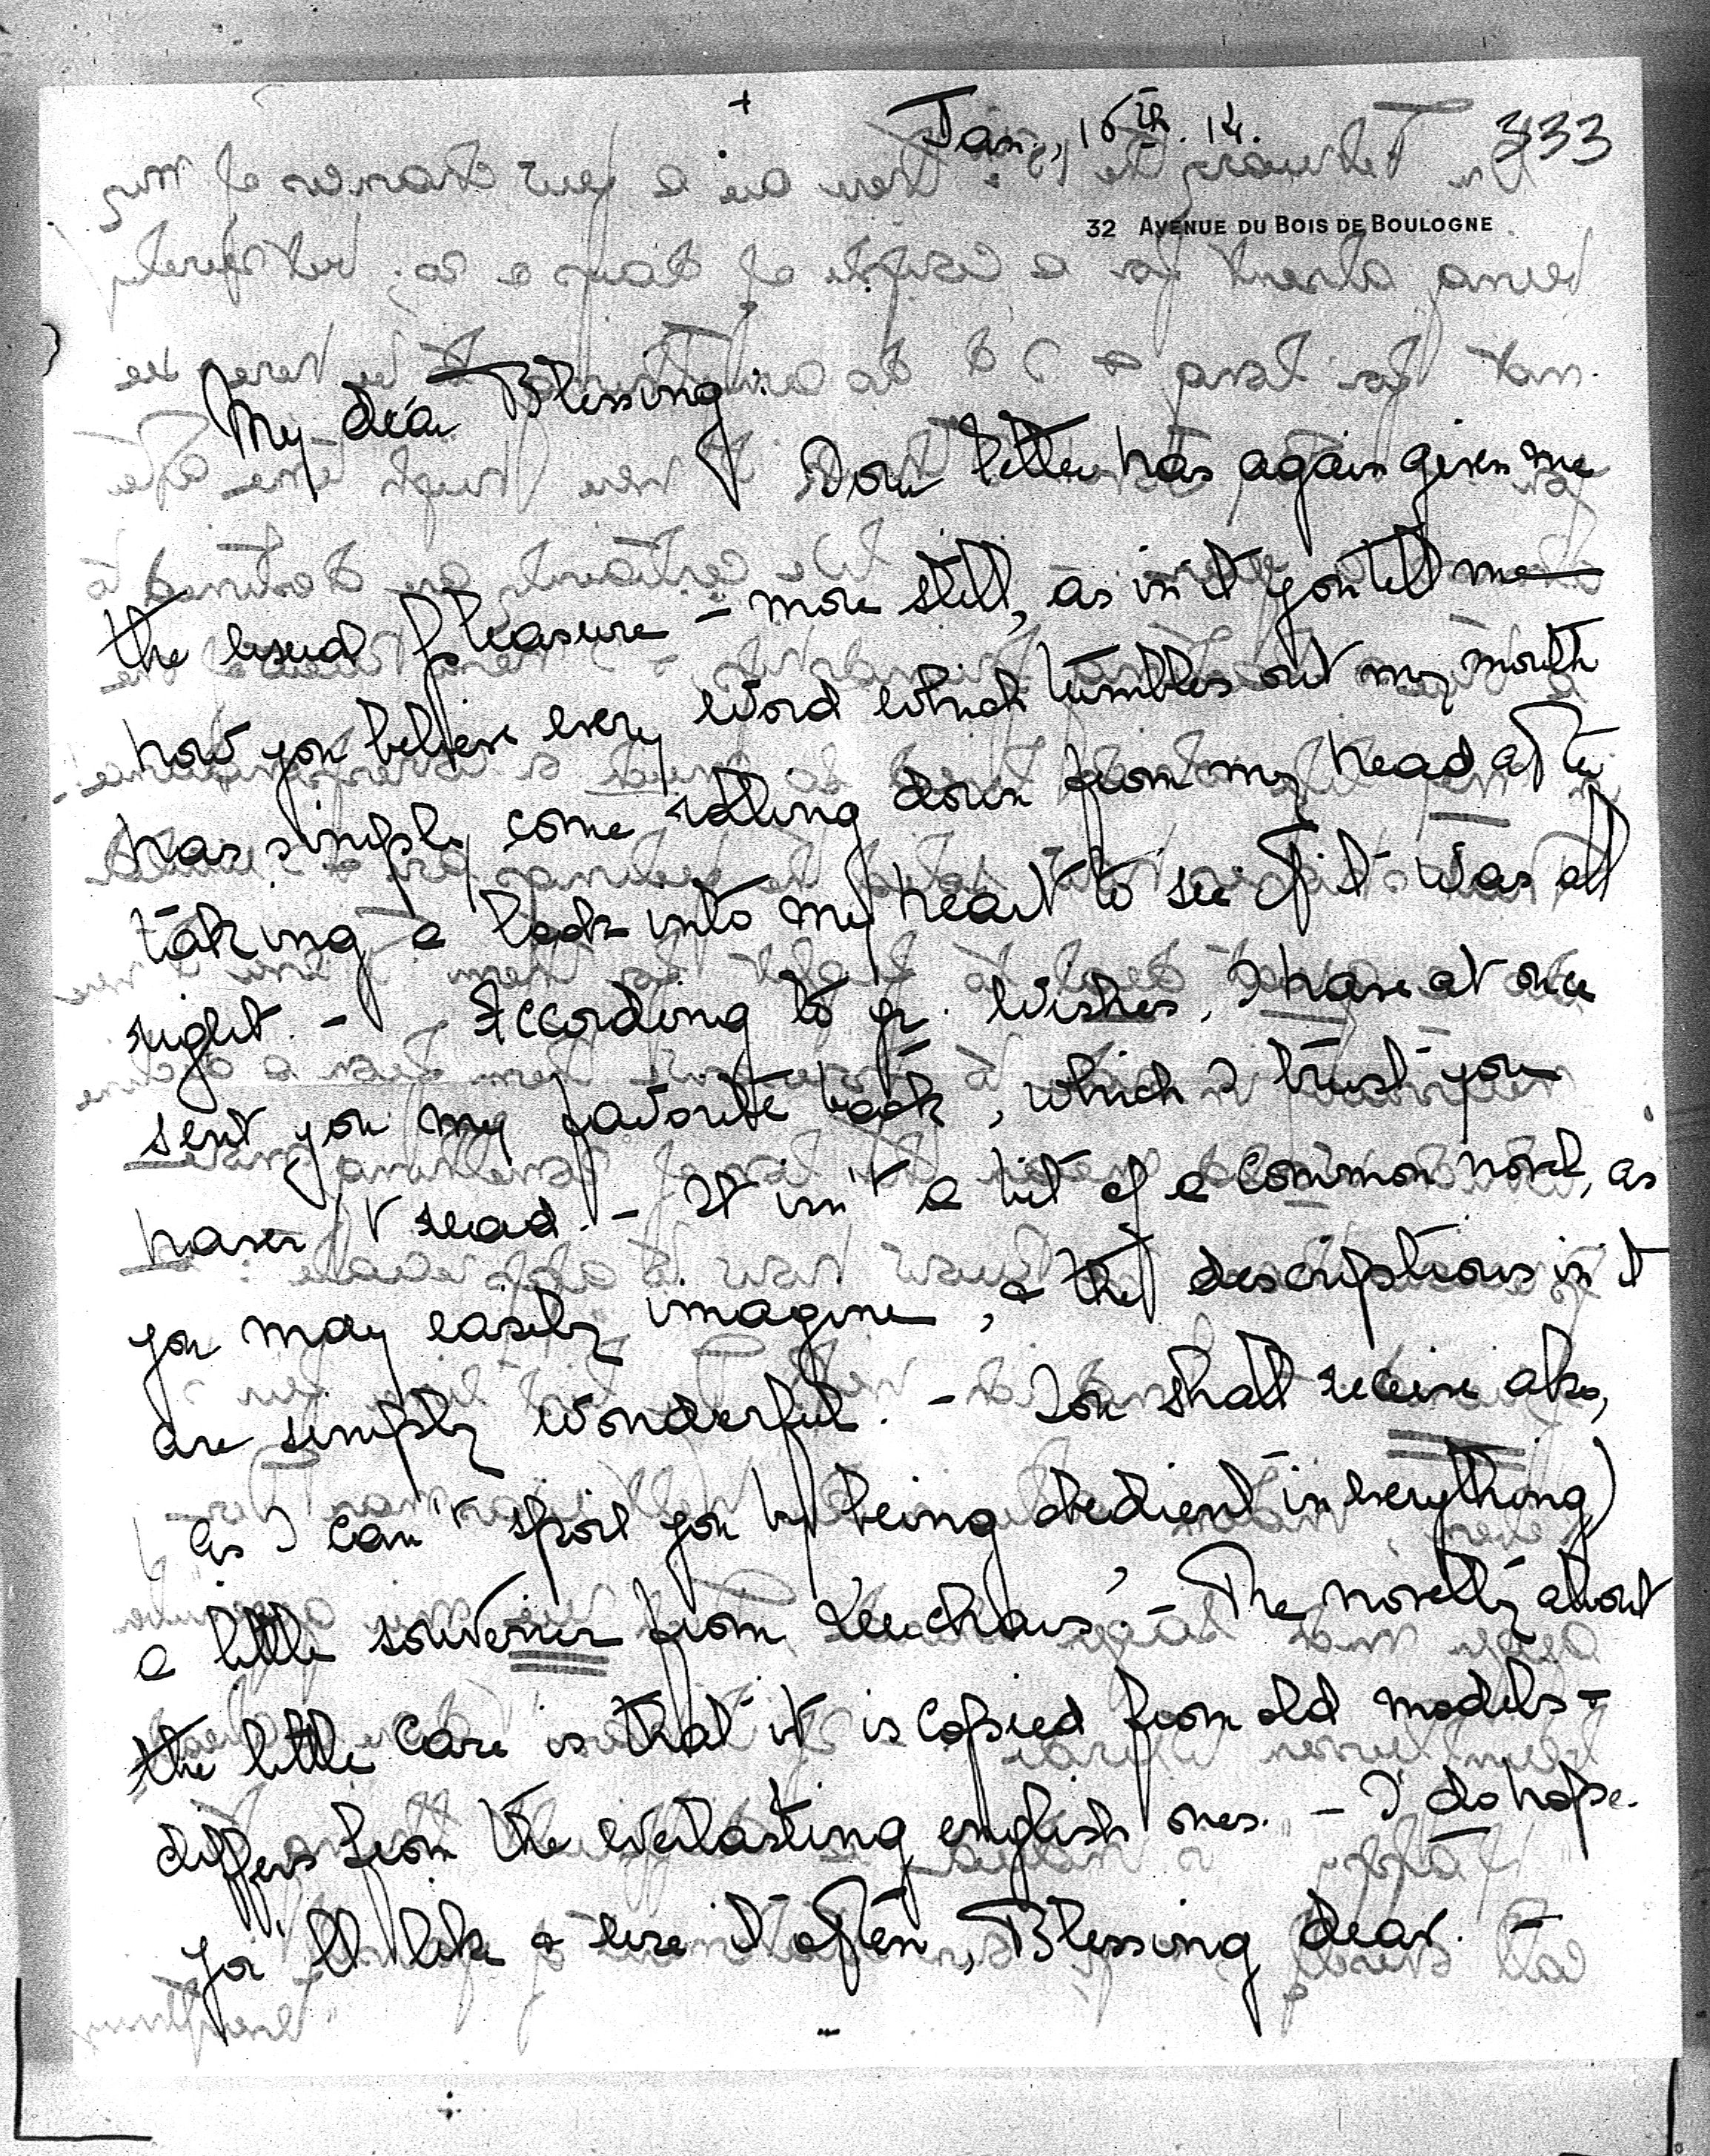 Jan., 16th. 14.
333
32 AVENUE DU BOIS DE BOULOGNE
My dear Blessing:
Your letter has again given me
the usual pleasure - more still, as in it you tell me
how you believe every word which tumbles out my mouth
has simply come ratling down from my head after
taking a look into my heart to see if it was all
right. - According to yr. wishes, I have at once
sent you my favorite book, which I trust you
haven't read. - It isn't a bit of a common novel, as
you may easily imagine, & the descriptions in it
are simply wonderful. - You shall receive also,
as I can't spoil you by being obedient in everything)
a little souvenir from - The novelty about
the little care is that it is copied from old models -
differs from the everlasting english ones. - I do hope
you'll like & use it often, Blessing dear. -